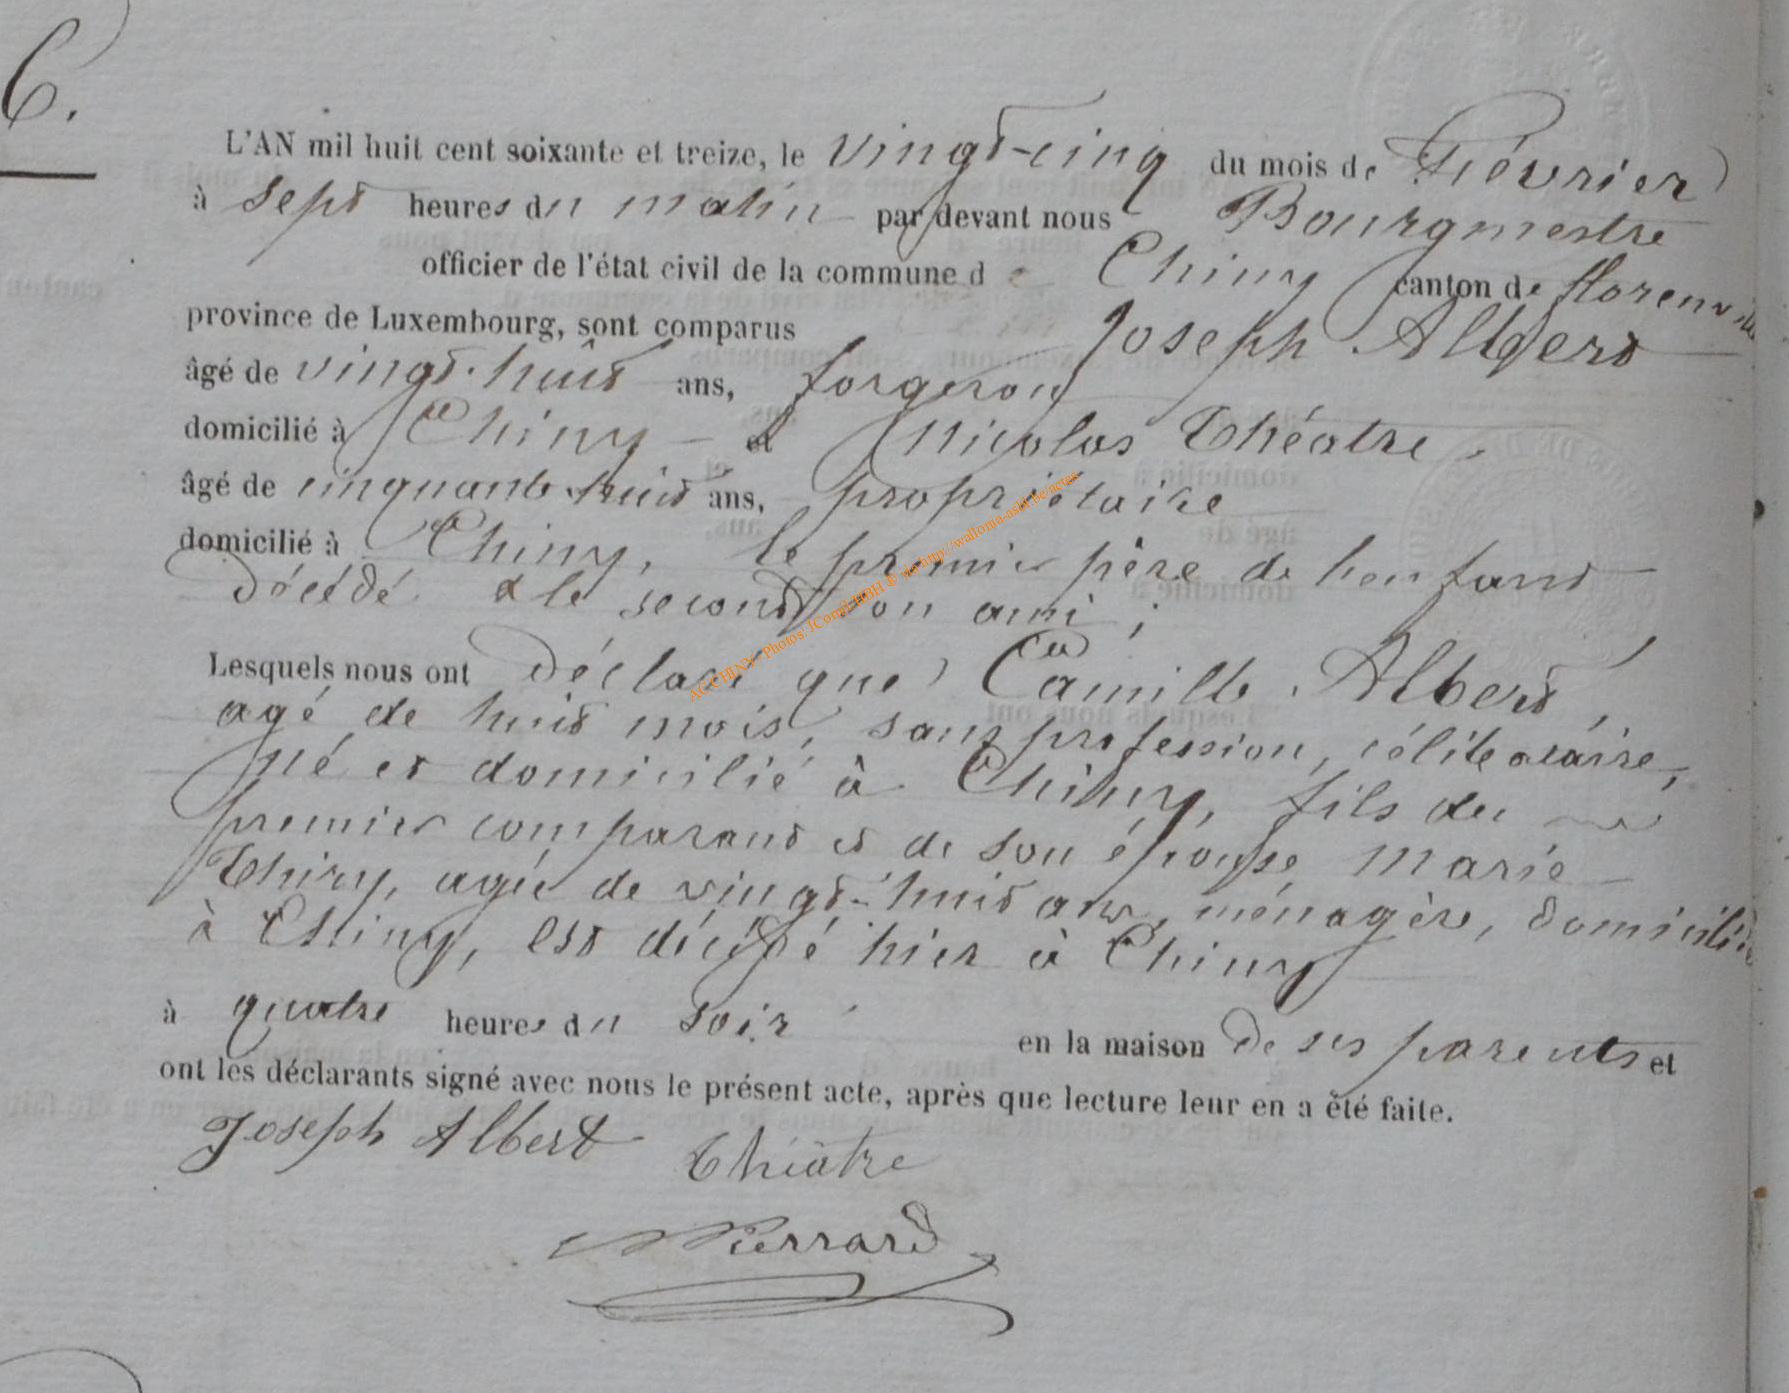 6.
L'AN mil huit cent soixante et treize, le vingt-cinq du mois de Février
à sept heures du matin par devant nous Bourgmestre
officier de l'état civil de la commune de Chiny canton de florenville
province de Luxembourg, sont comparus Joseph Albert
âgé de vingt-huit ans, forgeron
domicilié à Chiny et Nicolas Théatre,
âgé de cinquante-huit ans, propriétaire
domicilié à Chiny, le premier père de l'enfant
décédé & le second son ami ;
Lesquels nous ont déclaré que Camille Albert,
agé de huit mois, sans profession, célibataire,
né et domicilié à Chiny, fils du
premier comparant et de son épouse Marie
Thiry, agée de vingt-huit ans, ménagère, domiciliée
à Chiny, est décédé hier à Chiny
à quatre heures du soir en la maison de ses parents et
ont les déclarants signé avec nous le présent acte, après que lecture leur en a été faite.
Joseph Albert Théâtre
Pierrard